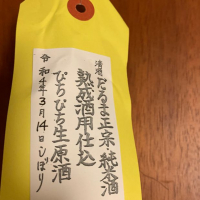 清酒 だるま正宗 純米酒
熟成酒用仕込
ぴちぴち生原酒
令和4年3月14日しぼり